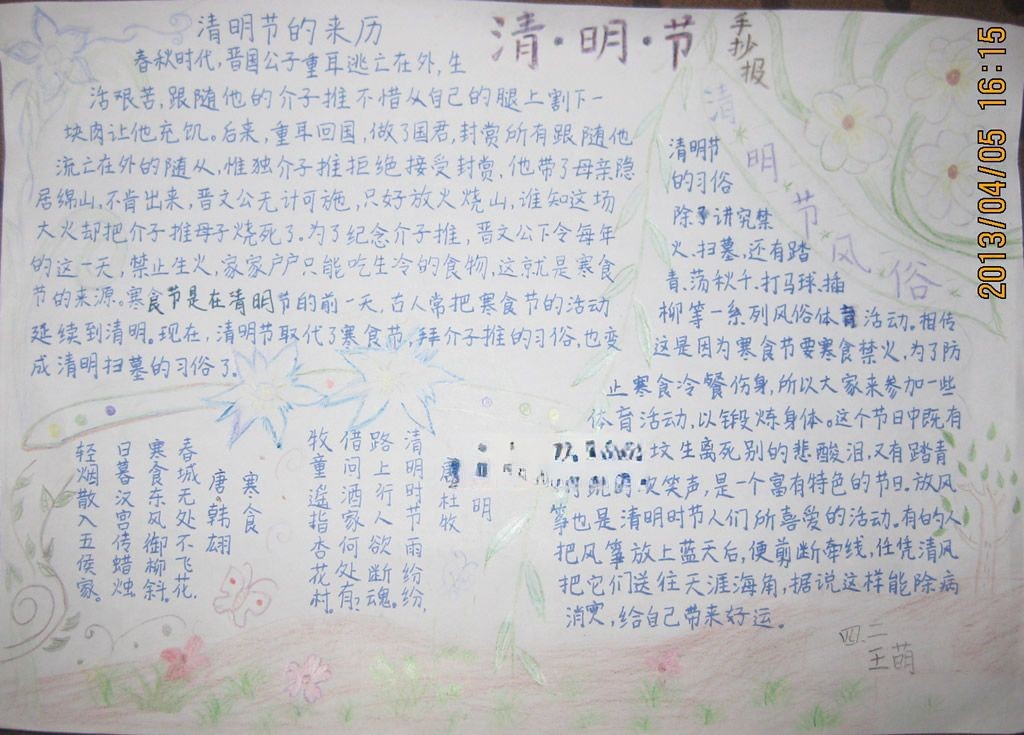 清明节的来历
春秋时代,晋国公子重耳逃亡在外,生
活艰苦,跟随他的介子推不惜从自己的腿上割下一
块肉让他充饥。后来,重耳回国,做了国君,封赏所有跟随他
流亡在外的随从,惟独介子推拒绝接受封赏,他带了母亲隐
居绵山,不肯出来,晋文公无计可施,只好放火烧山,谁知这场
大火却把介子推母子烧死了。为了纪念介子推,晋文公下令每年
的这一天,禁止生火,家家户户只能吃生冷的食物,这就是寒食
节的来源。寒食节是在清明节的前一天,古人常把寒食节的活动
延续到清明。现在,清明节取代了寒食节,拜介子推的习俗,也变
成清明扫墓的习俗了。
清·明·节
手抄报
清明节风俗
清明节
的习俗
除了讲究禁
火、扫墓,还有踏
青、荡秋千、打马球、插
柳等一系列风俗体育活动。相传
这是因为寒食节要寒食禁火,为了防
止寒食冷餐伤身,所以大家来参加一些
体育活动,以锻炼身体。这个节日中既有
坟生离死别的悲酸泪,又有踏青
欢笑声,是一个富有特色的节日。放风
筝也是清明时节人们所喜爱的活动。有的人
把风筝放上蓝天后,便剪断牵线,任凭清风
把它们送往天涯海角,据说这样能除病
消灾,给自己带来好运。
明
唐 杜牧
清明时节雨纷纷,
路上行人欲断魂。
借问酒家何处有?
牧童遥指杏花村。
寒食
唐·韩翃
春城无处不飞花,
寒食东风御柳斜。
日暮汉宫传蜡烛
轻烟散入五侯家。
四.二
王萌
2013/04/05 16:15